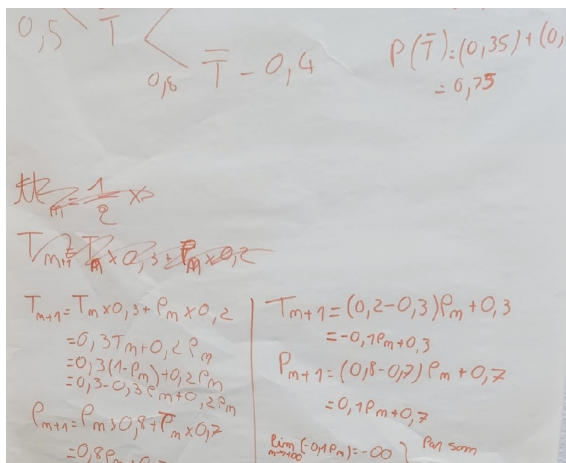 0,5
T̄
0,8 T̄ - 0,4
P(T̄)=(0,35)+(0,
= 0,75
m = 1/2 ×
T m+1 = T m × 0,3 + P m × 0,2
T m+1 = T m × 0,3 + P m × 0,2
=0,3T m + 0,2 P m
=0,3(1-P m)+0,2P m
=0,3-0,3P m+0,2P m
P m+1 = P m × 0,8 + T m × 0,7
=0,8P m
T m+1 = (0,2-0,3)P m + 0,3
= -0,1P m + 0,3
P m+1 = (0,8-0,7)P m + 0,7
= 0,1P m + 0,7
lim m→+∞ (-0,1P m) = -∞ } Par som